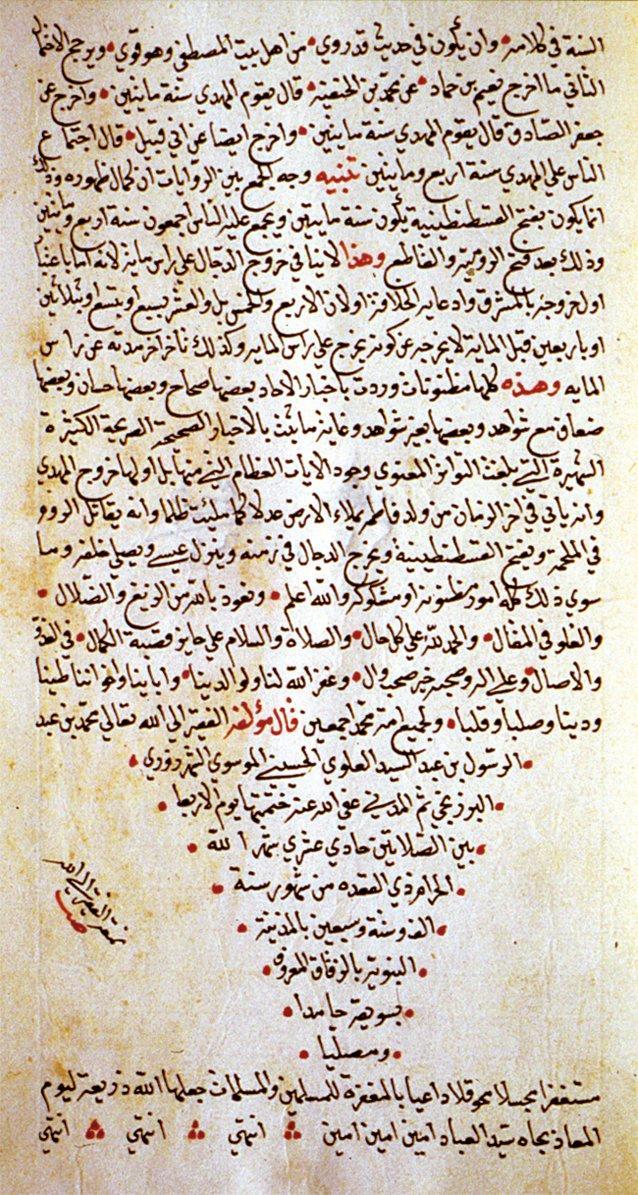 السنة في كلامه • وان يكون في حديث قد روي • من اهل بيت المصطفى وهو قوي • ويرجح الاحتمال
الثاني ما اخرج نعيم بن حماد • عن محمد بن الحنفية • قال يقوم المهدي سنة مايتين • واخرج عن
جعفر الصادق قال يقوم المهدي سنة مايتين • واخرج ايضا عن ابي قبيل • قال اجتماع
الناس علي المهدي سنة اربع ومايتين تنبيه وجه الجمع بين الروايات ان كمال ظهوره وذلك
انما يكون بفتح القسطنطينية يكون سنة مايتين ويجمع عليه الناس اجمعون سنة اربع ومايتين
وذلك بعد فتح الرومية والقاطع وهذا لا ينافي خروج الدجال علي راس ماية لانه اما باعتبار
اول خروجه بالمشرق وادعايه الخلافة او لان الاربع والخمس بل والعشر بسبع او بتسع او بثلاثين
او باربعين قبل الماية لا يخرجه عن كونه يخرج علي راس المايه وكذلك تاخر اخر مدته عن راس
المايه وهذه كلها مظنونات وردت باخبار الاحاد بعضها صحاح وبعضها حسان وبعضها
ضعاف مع شواهد وبعضها بغير شواهد وغاية ما يثبت بالاخبار الصحيحة الصريحة الكثيرة
الشهيرة التي بلغت التواتر المعنوي وجود الايات العظام التي منها بل اولها خروج المهدي
وانه ياتي في اخر الزمان من ولد فاطمة يملاء الارض عدلا كما ملئت ظلما وانه يقاتل الروم
في الملحمة ويفتح القسطنطينية ويخرج الدجال في زمنه وينزل عيسي ويصلي خلفه وما
سوي ذلك كله امور مظنونة او مشكوكه والله اعلم • ونعوذ بالله من الزيغ والضلال •
والغلو في المقال • والحمد لله علي كل حال • والصلاة والسلام علي حايز قصبة الكمال • في الغدو
والاصال • وعلي اله وصحبه خير صحب وال • وغفر الله لنا ولوالدينا • وابائنا ولاخواننا طينا
ودينا وصلبا وقلبا • ولجميع امة محمد اجمعين قال مؤلفه الفقير الي الله تعالي محمد بن عبد
• الرسول بن عبد السيد العلوي الحسيني الموسوي الشهرزوري •
• البرزنجي ثم المدني عفي الله عنه ختمتها يوم الاربعا •
• بين الصلاتين حادي عشري شهر الله •
• الحرام ذي القعده من شهور سنة •
• الف وستة وسبعين بالمدينة •
• النبوية بالزقاق المعروف •
• بسويقة حامدا •
• ومصليا •
مستغفرا محسبلا محوقلا داعيا بالمغفرة للمسلمين والمسلمات جعلها الله ذريعة ليوم
المعاد بجاه سيد العباد امين امين امين انتهي انتهي انتهي
الفقير الي الله